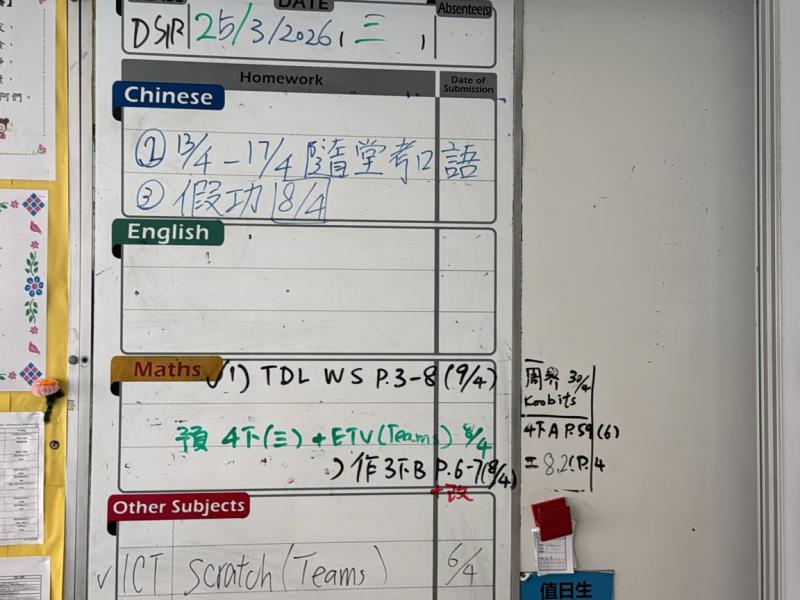 DATE
Absentee(s)
25/3/2026 (三 )
Homework
Date of Submission
Chinese
② 13/4 - 17/4 隨堂考口語
③ 假功 8/4
English
Maths
✓1) TDL WS P.3-8 (9/4)
預 4下(三) + ETV (Teams) 8/4
) 作3下B P.6-7 (8/4)
+改
周界 30/4
Koobits
4下A P.59 (6)
工 8.2 P.4
Other Subjects
✓ ICT Scratch (Teams) 6/4
值日生